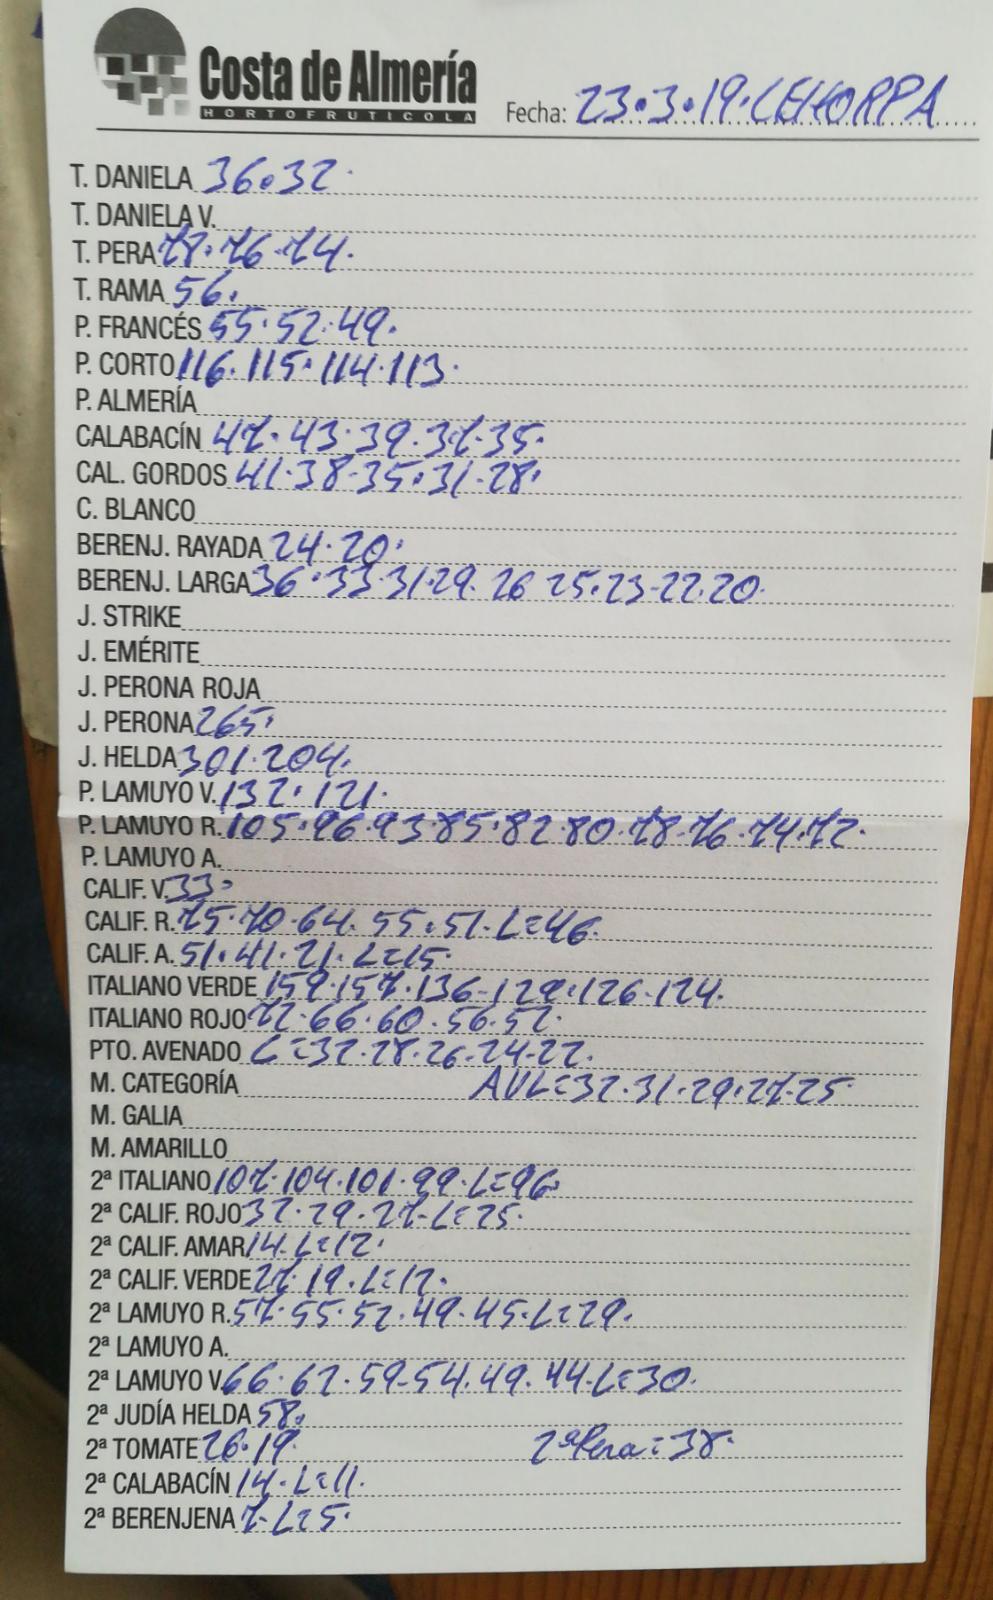 Costa de Almería
HORTOFRUTICOLA
Fecha: 23.3.19.CEHORPA
T. DANIELA 36.32.
T. DANIELA V.
T. PERA 78.76.74.
T. RAMA 56.
P. FRANCÉS 55.52.49.
P. CORTO 116.115.114.113.
P. ALMERÍA
CALABACÍN 47.43.39.37.35.
CAL. GORDOS 41.38-35.31-28.
C. BLANCO
BERENJ. RAYADA 24.20.
BERENJ. LARGA 36.33 31.29.26 25.23-22.20.
J. STRIKE
J. EMÉRITE
J. PERONA ROJA
J. PERONA 265.
J. HELDA 301.204.
P. LAMUYO V. 132.121.
P. LAMUYO R. 105.96.93.85.82.80.78.76.74.72.
P. LAMUYO A.
CALIF. V. 33.
CALIF. R. 75.70.64.55.51.L=46.
CALIF. A. 51.41.21.L=15.
ITALIANO VERDE 159.157.136-129.126-124.
ITALIANO ROJO 72-66.60.56.52.
PTO. AVENADO L=32.28.26.24-22.
M. CATEGORÍA AVL=32.31.29.27-25
M. GALIA
M. AMARILLO
2ª ITALIANO 107.104.101.99.L=96.
2ª CALIF. ROJO 32.29.27-L=25.
2ª CALIF. AMAR 14.L=12.
2ª CALIF. VERDE 27.19.L=12.
2ª LAMUYO R. 57.55.52.49.45.L=29.
2ª LAMUYO A.
2ª LAMUYO V. 66.62.59-54.49.44-L=30.
2ª JUDÍA HELDA 58.
2ª TOMATE 26.19. 2ªPera=38.
2ª CALABACÍN 14.L=11.
2ª BERENJENA 7-L=5.